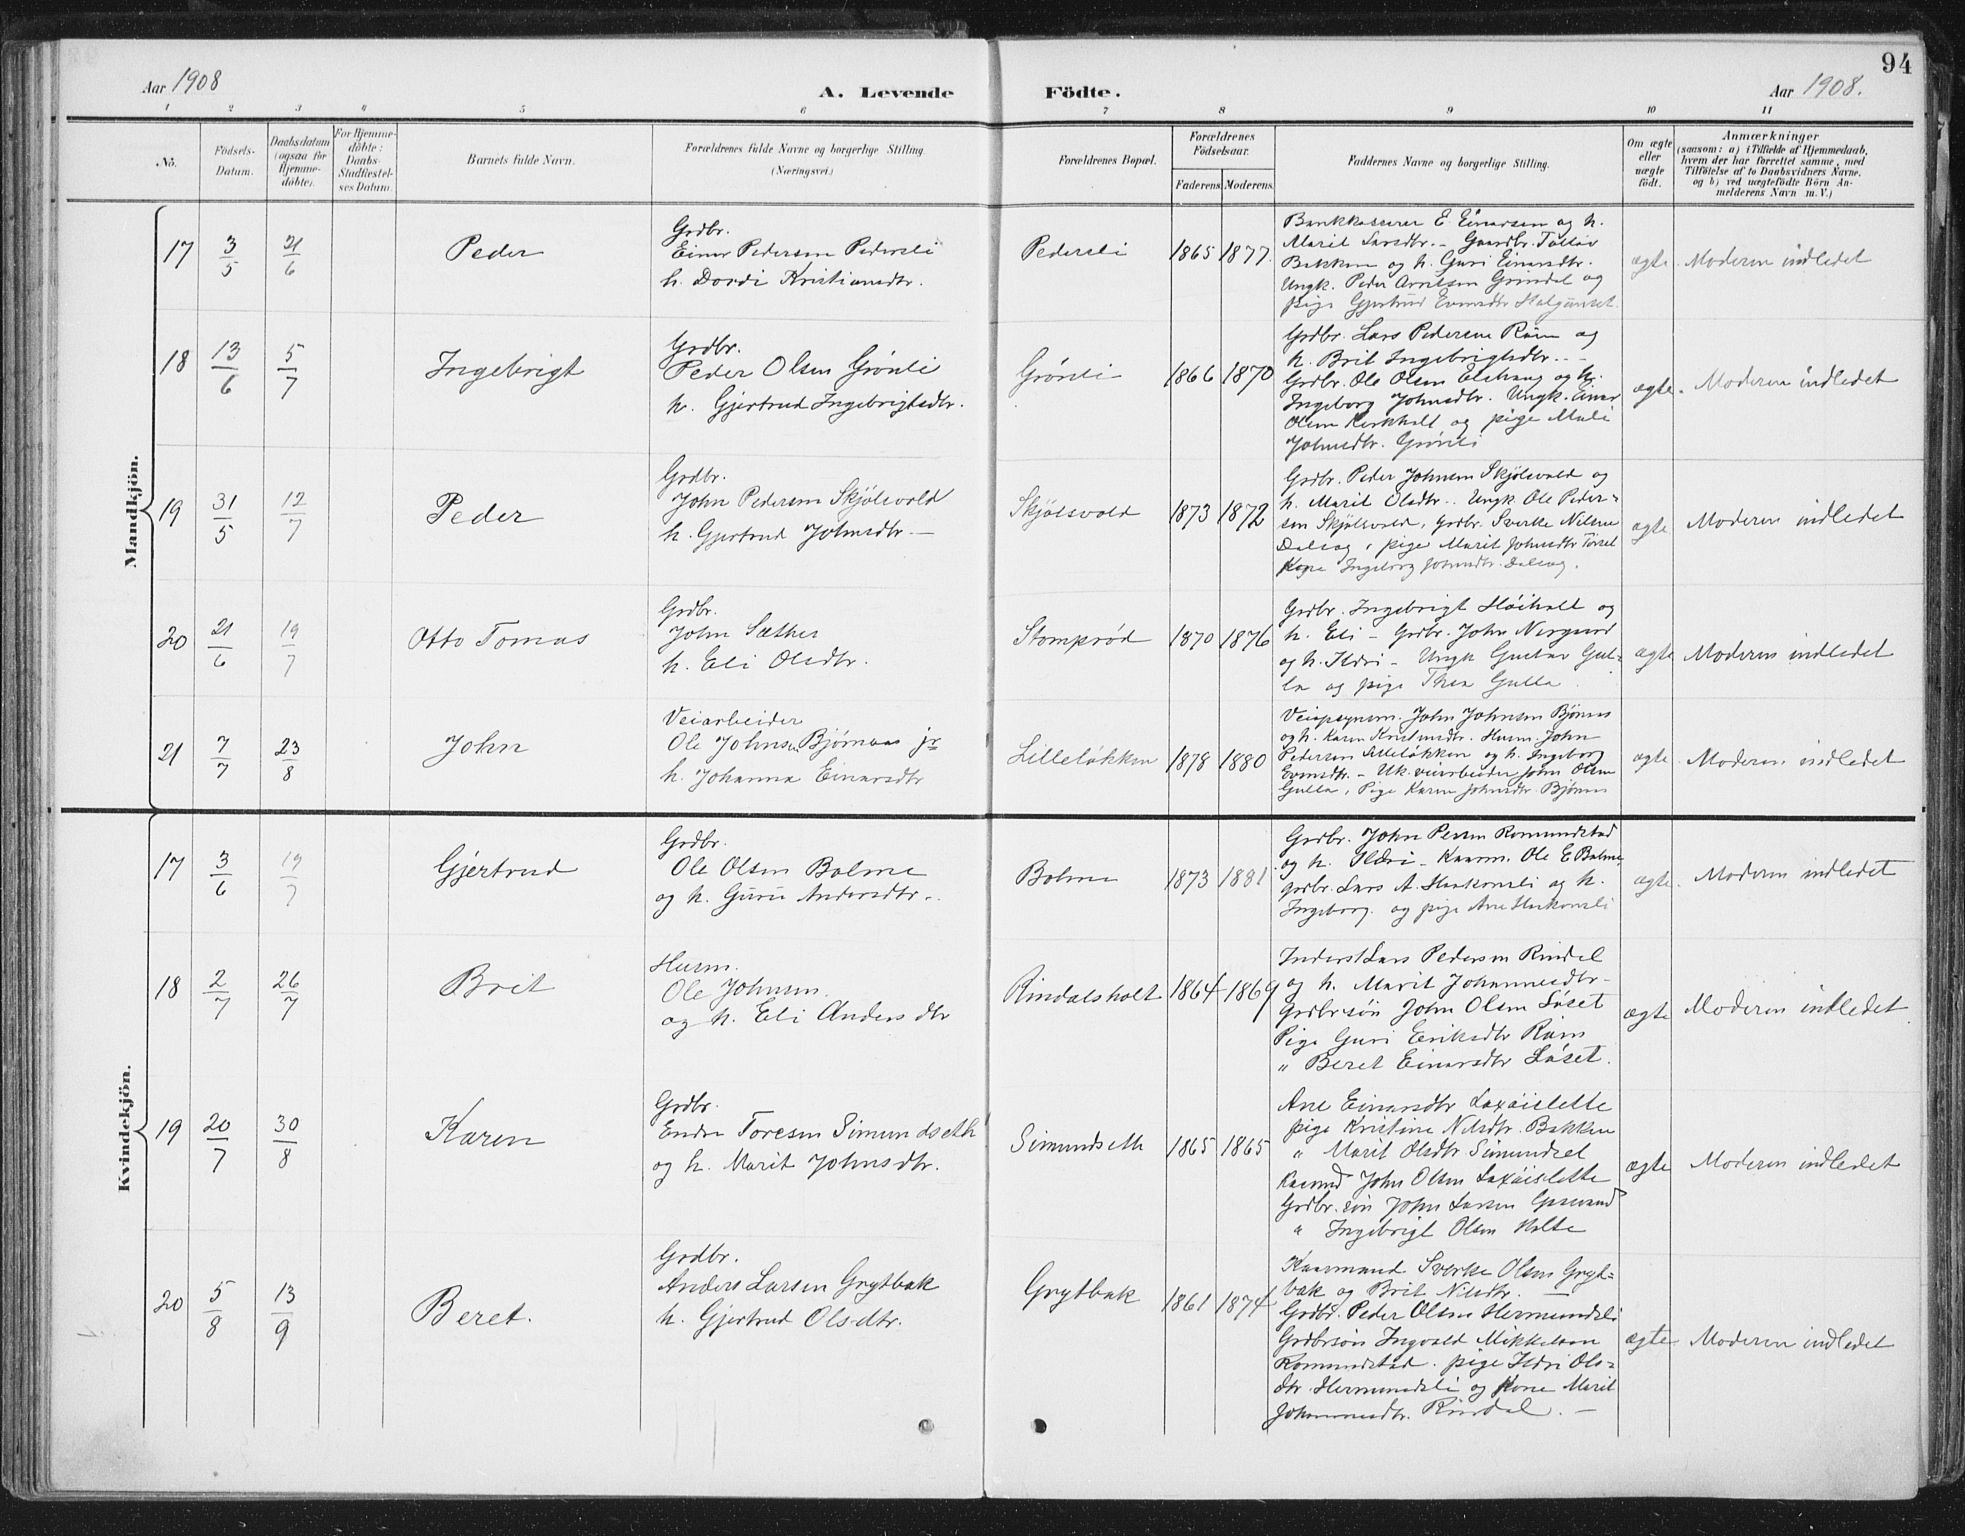 94
Aar 1908
A. Levende
Födte.
Aar 1908.
1 2 3 4 5 6 7 8 9 10 11
No.
Födsels-
Datum.
Daabsdatum
(ogsaa for
Hjemme-
döbte).
For Hjemme-
döbte:
Daabs-
Stadfæstel-
ses Datum.
Barnets fulde Navn.
Forældrenes fulde Navne og borgerlige Stilling.
(Næringsvei.)
Forældrenes Bopæl.
Forældrenes
Födselsaar.
Faderens. Moderens.
Faddernes Navne og borgerlige Stilling.
Om ægte
eller
uægte
födt.
Anmærkninger
(saasom: a) i Tilfælde af Hjemmedaab,
hvem der har forrettet samme, med
Tilföielse af to Daabsvidners Navne,
og b) ved uægtefödte Börn An-
melderens Navn m. V.)
Mandkjön.
17
3/5
21/6
Peder
Grdbr.
Einar Pedersen Pedersli
h. Dordi Kristiansdtr.
Pedersli
1865 1877.
Bankkasserer E Einarsen og h.
Marit Larsdtr. - Gaardbr. Tollöv
Bakken og h. Guri Einarsdtr.
Ungk. Peder Arntsen Grindal og
pige Gjertrud Evensdtr Halgunset.
ægte.
Moderen indledet
18
13/6
5/7
Ingebrigt
Grdbr.
Peder Olsen Grönli
h. Gjertrud Ingebrigtsdtr.
Grönli
1866 1870
Grdbr. Lars Pedersen Röen og
h. Brit Ingebrigtsdtr. -
Grdbr. Ole Olsen Elshaug og h.
Ingeborg Johnsdtr. Ungk. Einar
Olsen Kirkholt og pige Mali
Johnsdtr. Grönli
ægte.
Moderen indledet
19
31/5
12/7
Peder
Grdbr.
John Pedersen Skjölsvold
h. Gjertrud Johnsdtr. -
Skjölsvold
1873 1872
Grdbr. Peder Johnsen Skjölsvold og
h. Marit Olsdtr. . Ungk. Ole Peder-
sen Skjölsvold, Grdbr. Sverke Nilsen
Dalsag, pige Marit Johnsdtr
Kone Ingeborg Johnsdtr. Dalsag.
ægte
Moderen indledet
20
21/6
19/7
Otto Tomas
Grdbr.
John Sæther
h. Eli Olsdtr.
Stomprød
1870 1876
Grdbr. Ingebrigt Höiholt og
h. Eli - Grdbr. John Nergaard
og h. Ildri - Ungk Gustav Gul-
la og pige Thea Gulla.
ægte
Moderen indledet
21
7/7
23/8
John
Veiarbeider
Ole Johnsen Bjørnaas jr
h. Johanna Einarsdtr
Lilleløkken
1878 1880
Veiopsynsm. John Johnsen Björnas
og h. Karen Kristiansdtr. Husm. John
Pedersen Lilleløkken og h. Ingeborg
Evensdtr. - Uk. veiarbeider John Olsen
Gulla, Pige Karen Johnsdtr. Björnas
ægte.
Moderen indledet
Kvindekjön.
17
3/6
19/7
Gjertrud
Grdbr.
Ole Olsen Bolme
og h. Guru Andersdtr.
Bolme
1873 1881
Grdbr. John Persen Romundstad
og h. Ildri - Kaarm. Ole E Bolme
grdbr. Lars A. Haakonsli og h.
Ingeborg. og pige Ane Haakonsli
ægte.
Moderen indledet
18
2/7
26/7
Brit
Husm.
Ole Johnsen
og h. Eli Andersdtr
Rindalsholt
1864 1869
Inderst Lars Pedersen Rindal
og h. Marit Johannesdtr-
Grdbrsön John Olsen Löset
Pige Guri Eriksdtr Röen
" Beret Einarsdtr Löset.
ægte
Moderen indledet
19
20/7
30/8
Karen
Grdbr.
Endre Toresen Simundseth
og h. Marit Johnsdtr.
Simundseth
1865 1865
Ane Einarsdtr Laxöislette
pige Kristine Nilsdtr. Bakken
" Marit Olsdtr Simundset
Kaarmd John Olsen Laxöislette
Grdbr. sön John Larsen
" Ingebrigt Olsen Holte
ægte
Moderen indledet
20
5/8
13/9
Beret.
Grdbr.
Anders Larsen Grytbak
h. Gjertrud Olsdtr.
Grytbak
1861 1874
Kaarmand Sverke Olsen Gryt-
bak og Brit Nilsdtr. -
Grdbr. Peder Olsen Hermundsli
Grdbrsön Ingvald Mikkelsen
Romundstad. pige Ildri Ols-
dtr. Hermundsli og kone Marit
Johannesdtr. Rindal. -
ægte
Moderen indledet